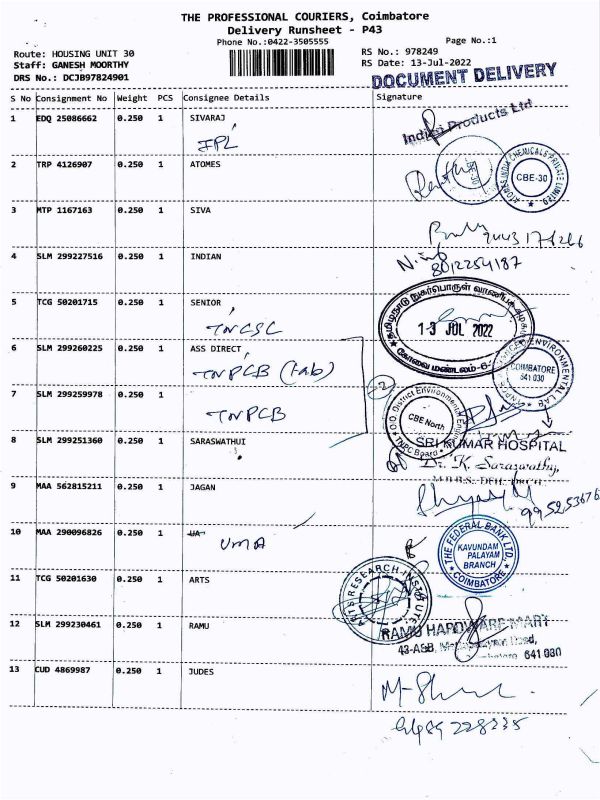 THE PROFESSIONAL COURIERS, Coimbatore
Delivery Runsheet - P43
Phone No.:0422-3505555
Page No.:1
Route: HOUSING UNIT 30
RS No.: 978249
Staff: GANESH MOORTHY
RS Date: 13-Jul-2022
DRS No.: DCJB97824901
DOCUMENT DELIVERY
S No Consignment No Weight PCS Consignee Details Signature
1 EDQ 25086662 0.250 1 SIVARAJ
Products Ltd
IPL
2 TRP 4126907 0.250 1 ATOMES
CHEMICALS PRIVATE LIMITED
CBE-30
3 MTP 1167163 0.250 1 SIVA
4 SLM 299227516 0.250 1 INDIAN
8012254187
5 TCG 50201715 0.250 1 SENIOR
தமிழ்நாடு நுகர்பொருள் வாணிபக் கழகம்
13 JUL 2022
கோவை மண்டலம்-6
TNCSC
6 SLM 299260225 0.250 1 ASS DIRECT
TNPCB (Lab)
COIMBATORE
641 030
7 SLM 299259978 0.250 1
TNPCB
O/O. District Environmental
CBE North
TNPC Board
8 SLM 299251360 0.250 1 SARASWATHUI
SRI KUMAR HOSPITAL
Dr. K. Saraswathy,
9 MAA 562815211 0.250 1 JAGAN
10 MAA 290096826 0.250 1 UA
UMA
THE FEDERAL BANK LTD.
KAVUNDAM
PALAYAM
BRANCH
COIMBATORE
11 TCG 50201630 0.250 1 ARTS
RESEARCH INSTITUTE
12 SLM 299230461 0.250 1 RAMU
RAMU HARDWARE MART
43-A&B, Road,
641 030
13 CUD 4869987 0.250 1 JUDES